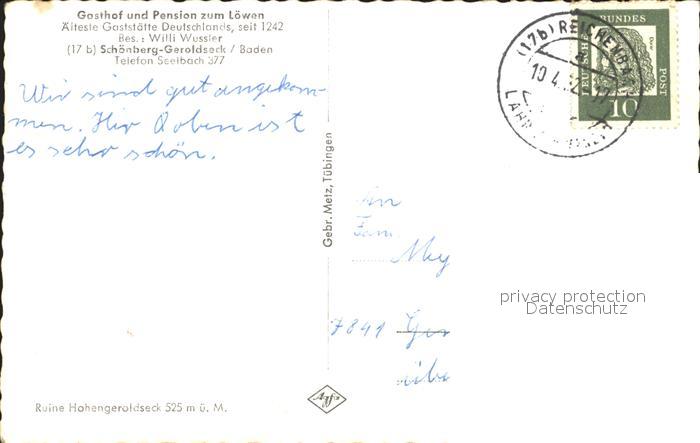 Gasthof und Pension zum Löwen
Älteste Gaststätte Deutschlands, seit 1242
Bes.: Willi Wussler
(17 b) Schönberg-Geroldseck / Baden
Telefon Seelbach 377
Wir sind gut angekom-
men. Hier oben ist
es sehr schön.
Gebr. Metz, Tübingen
(17b) REICHENBACH
a
10.4.
LAHR
DEUTSCHE BUNDESPOST
10
An
Fam.
privacy protection
Datenschutz
Agfa
Ruine Hohengeroldseck 525 m ü. M.